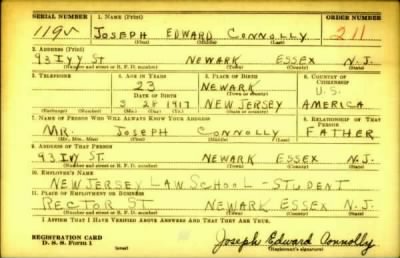 SERIAL NUMBER 1. NAME (Print) ORDER NUMBER
JOSEPH EDWARD CONNOLLY 211
(First) (Middle) (Last)
2. ADDRESS (Print)
93 IVY ST NEWARK ESSEX N.J.
(Number and street or R. F. D. number) (Town) (County) (State)
3. TELEPHONE 4. AGE IN YEARS 5. PLACE OF BIRTH 6. COUNTRY OF CITIZENSHIP
23 NEWARK U.S.
(Town or county)
DATE OF BIRTH
3 28 1917 NEW JERSEY AMERICA
(Exchange) (Number) (Mo.) (Day) (Yr.) (State or country)
7. NAME OF PERSON WHO WILL ALWAYS KNOW YOUR ADDRESS 8. RELATIONSHIP OF THAT PERSON
MR. JOSEPH CONNOLLY FATHER
(Mr., Mrs., Miss) (First) (Middle) (Last)
9. ADDRESS OF THAT PERSON
93 IVY ST. NEWARK ESSEX N.J.
(Number and street or R. F. D. number) (Town) (County) (State)
10. EMPLOYER'S NAME
NEW JERSEY LAW SCHOOL - STUDENT
11. PLACE OF EMPLOYMENT OR BUSINESS
RECTOR ST NEWARK ESSEX N.J.
(Number and street or R. F. D. number) (Town) (County) (State)
I AFFIRM THAT I HAVE VERIFIED ABOVE ANSWERS AND THAT THEY ARE TRUE.
REGISTRATION CARD
D. S. S. Form 1 (over) Joseph Edward Connolly
(Registrant's signature)